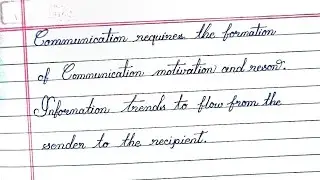 Communication requires the formation
of Communication motivation and reson.
Information trends to flow from the
sender to the recipient.